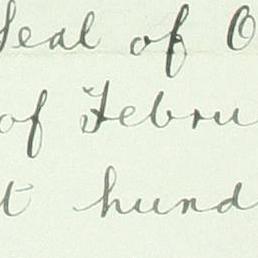 Seal of O
of Febru
t hund